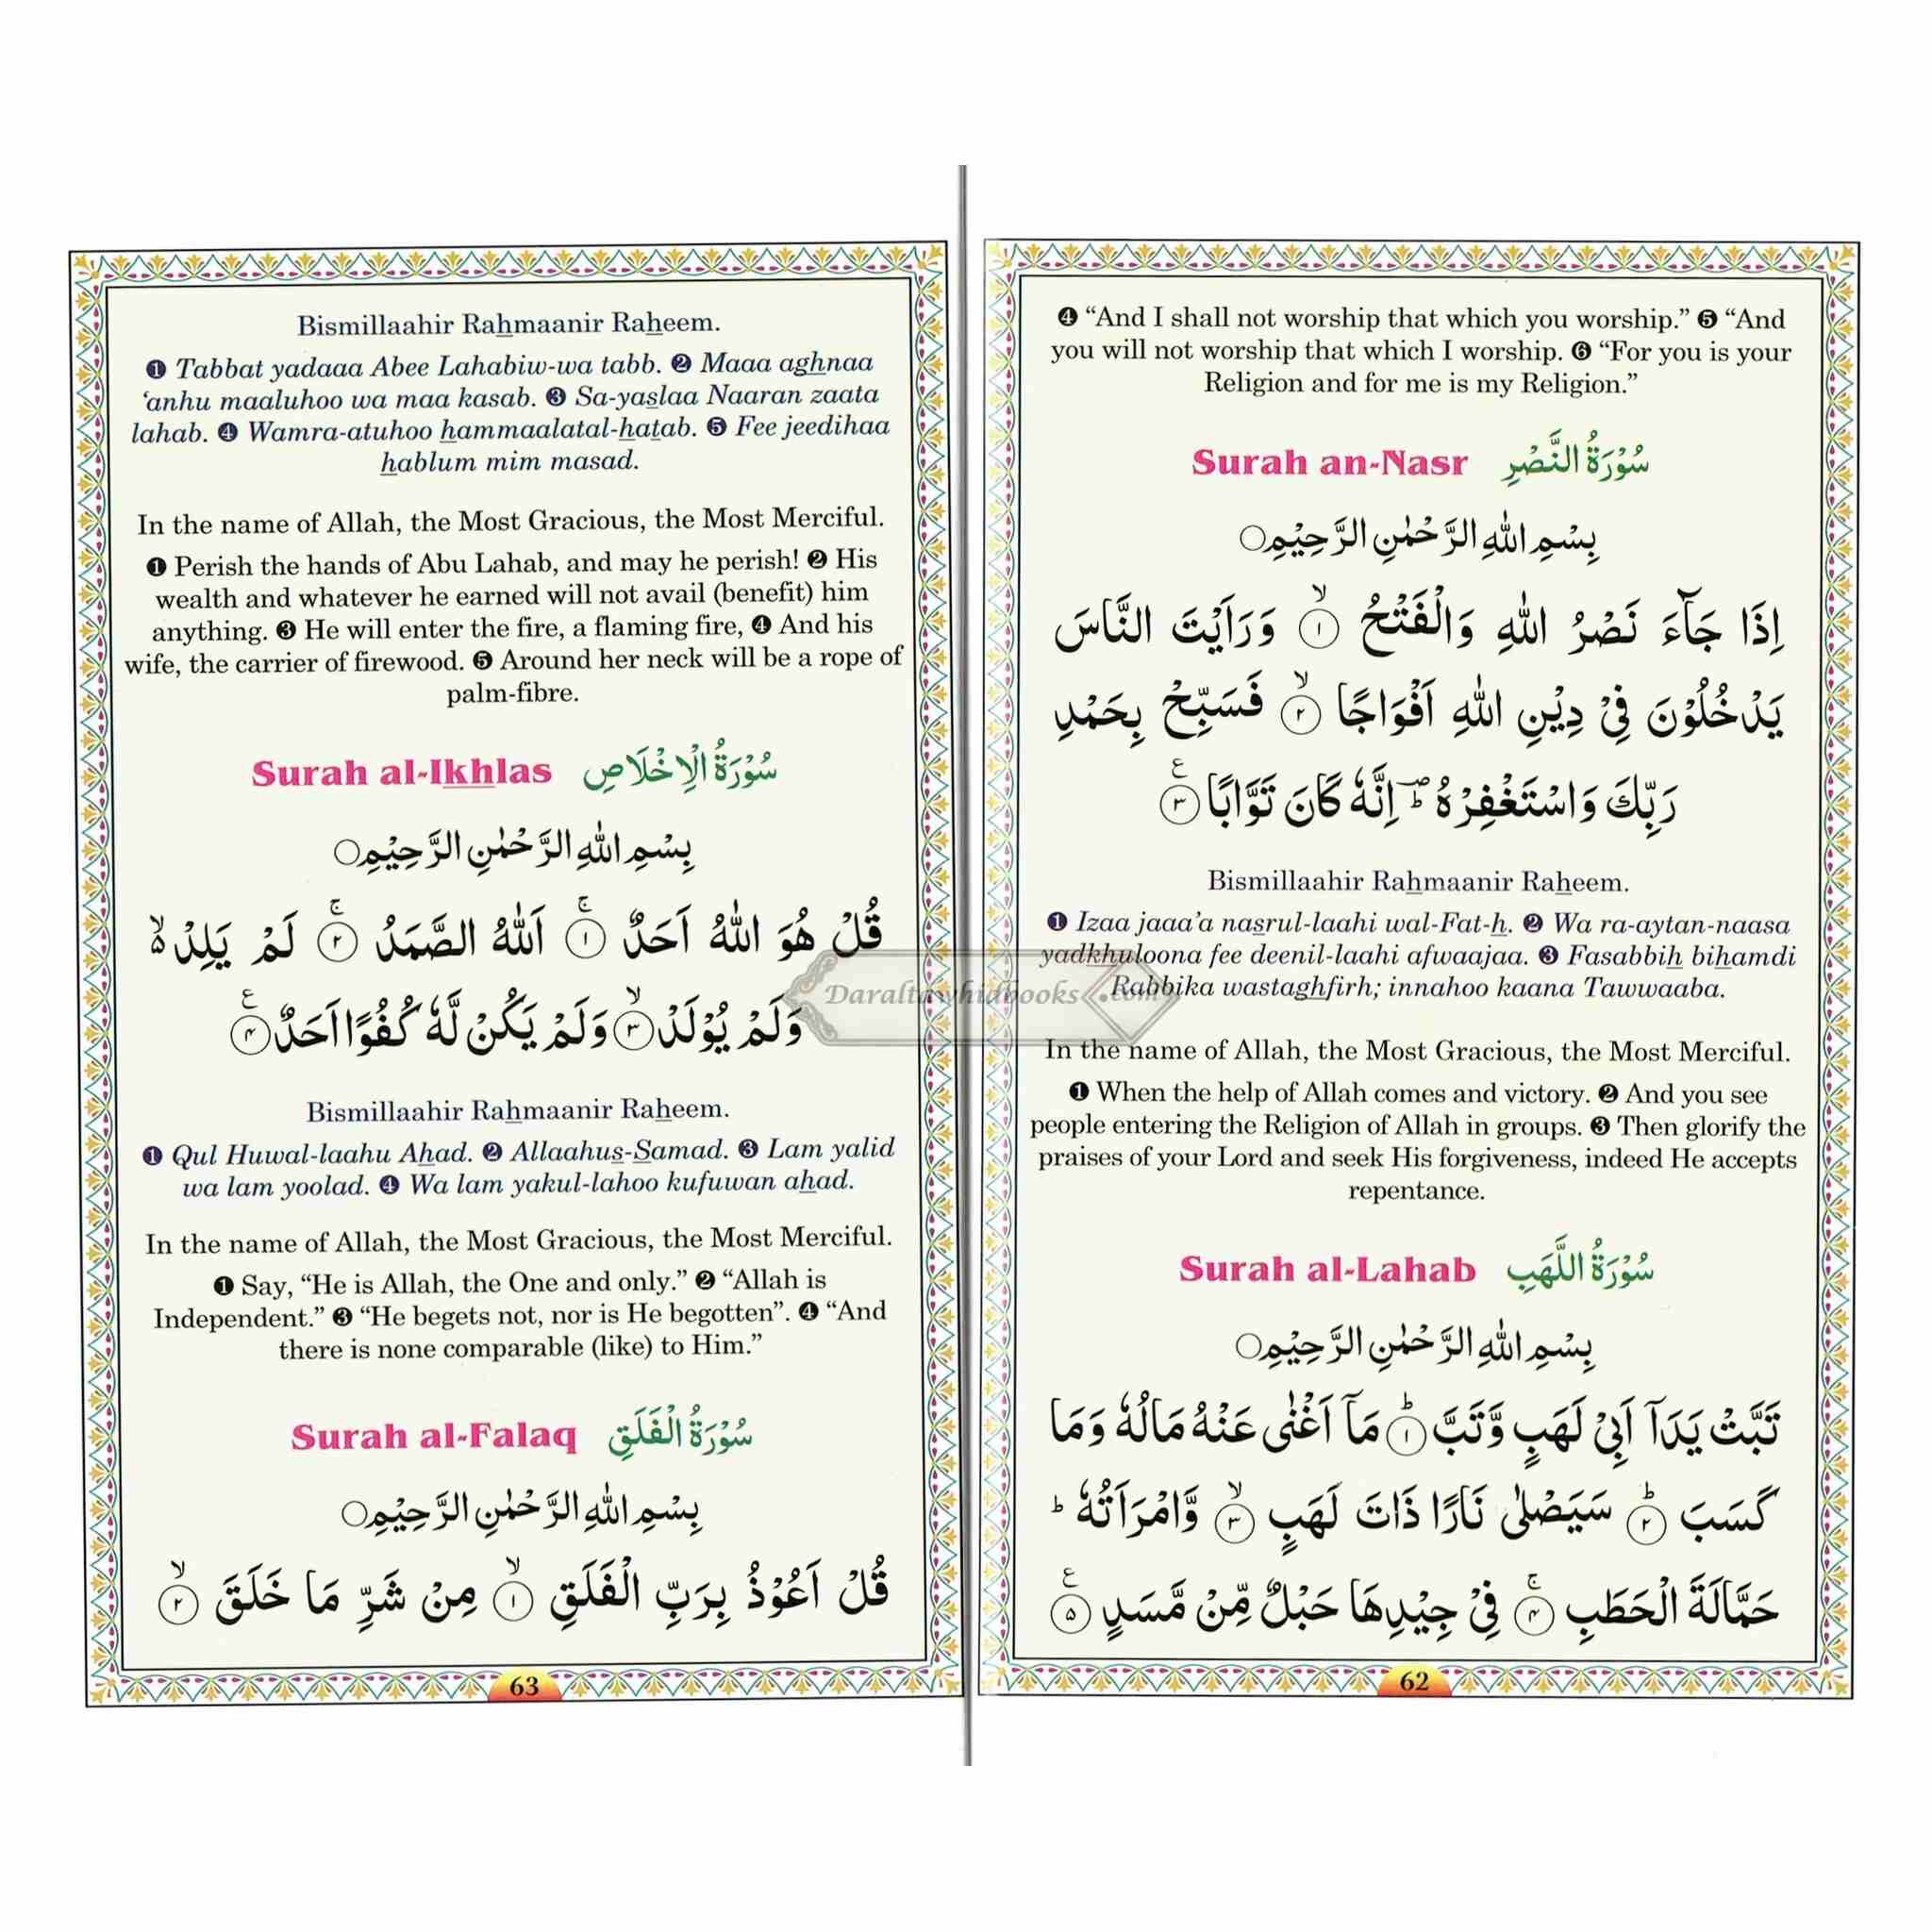 ❹ “And I shall not worship that which you worship.” ❺ “And
you will not worship that which I worship. ❻ “For you is your
Religion and for me is my Religion.”
Surah an-Nasr سُوْرَةُ النَّصْرِ
بِسْمِ اللّٰهِ الرَّحْمٰنِ الرَّحِيْمِ○
اِذَا جَآءَ نَصْرُ اللّٰهِ وَالْفَتْحُ ۙ﴿١﴾ وَرَاَيْتَ النَّاسَ
يَدْخُلُوْنَ فِيْ دِيْنِ اللّٰهِ اَفْوَاجًا ۙ﴿٢﴾ فَسَبِّحْ بِحَمْدِ
رَبِّكَ وَاسْتَغْفِرْهُ ؔؕ اِنَّهٗ كَانَ تَوَّابًا ﴿٣﴾ ع
Bismillaahir Rahmaanir Raheem.
❶ Izaa jaaa’a nasrul-laahi wal-Fat-h. ❷ Wa ra-aytan-naasa
yadkhuloona fee deenil-laahi afwaajaa. ❸ Fasabbih bihamdi
Rabbika wastaghfirh; innahoo kaana Tawwaaba.
In the name of Allah, the Most Gracious, the Most Merciful.
❶ When the help of Allah comes and victory. ❷ And you see
people entering the Religion of Allah in groups. ❸ Then glorify the
praises of your Lord and seek His forgiveness, indeed He accepts
repentance.
Surah al-Lahab سُوْرَةُ اللَّهَبِ
بِسْمِ اللّٰهِ الرَّحْمٰنِ الرَّحِيْمِ○
تَبَّتْ يَدَآ اَبِيْ لَهَبٍ وَّتَبَّ ؕ﴿١﴾ مَآ اَغْنٰى عَنْهُ مَالُهٗ وَمَا
كَسَبَ ؕ﴿٢﴾ سَيَصْلٰى نَارًا ذَاتَ لَهَبٍ ۙ﴿٣﴾ وَّامْرَاَتُهٗ ؕ
حَمَّالَةَ الْحَطَبِ ۚ﴿٤﴾ فِيْ جِيْدِهَا حَبْلٌ مِّنْ مَّسَدٍ ﴿٥﴾ ع
62
Bismillaahir Rahmaanir Raheem.
❶ Tabbat yadaaa Abee Lahabiw-wa tabb. ❷ Maaa aghnaa
‘anhu maaluhoo wa maa kasab. ❸ Sa-yaslaa Naaran zaata
lahab. ❹ Wamra-atuhoo hammaalatal-hatab. ❺ Fee jeedihaa
hablum mim masad.
In the name of Allah, the Most Gracious, the Most Merciful.
❶ Perish the hands of Abu Lahab, and may he perish! ❷ His
wealth and whatever he earned will not avail (benefit) him
anything. ❸ He will enter the fire, a flaming fire, ❹ And his
wife, the carrier of firewood. ❺ Around her neck will be a rope of
palm-fibre.
Surah al-Ikhlas سُوْرَةُ الْاِخْلَاصِ
بِسْمِ اللّٰهِ الرَّحْمٰنِ الرَّحِيْمِ○
قُلْ هُوَ اللّٰهُ اَحَدٌ ۚ﴿١﴾ اَللّٰهُ الصَّمَدُ ۚ﴿٢﴾ لَمْ يَلِدْ ۙ۬
وَلَمْ يُوْلَدْ ۙ﴿٣﴾ وَلَمْ يَكُنْ لَّهٗ كُفُوًا اَحَدٌ ﴿٤﴾ ع
Bismillaahir Rahmaanir Raheem.
❶ Qul Huwal-laahu Ahad. ❷ Allaahus-Samad. ❸ Lam yalid
wa lam yoolad. ❹ Wa lam yakul-lahoo kufuwan ahad.
In the name of Allah, the Most Gracious, the Most Merciful.
❶ Say, “He is Allah, the One and only.” ❷ “Allah is
Independent.” ❸ “He begets not, nor is He begotten”. ❹ “And
there is none comparable (like) to Him.”
Surah al-Falaq سُوْرَةُ الْفَلَقِ
بِسْمِ اللّٰهِ الرَّحْمٰنِ الرَّحِيْمِ○
قُلْ اَعُوْذُ بِرَبِّ الْفَلَقِ ۙ﴿١﴾ مِنْ شَرِّ مَا خَلَقَ ۙ﴿٢﴾
63
Daraltawhidbooks.com